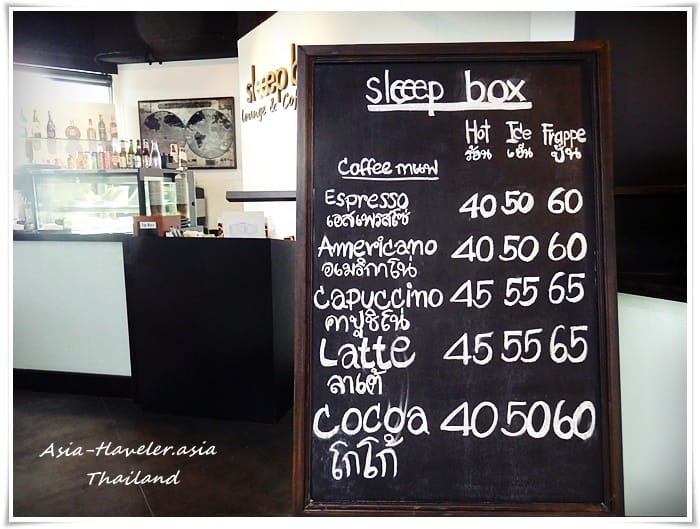 sleeep b
Lounge & Caf
sleeep box
Hot Ice Frappe
ร้อน เย็น ปั่น
Coffee กาแฟ
Espresso 40 50 60
เอสเพรสโซ่
Americano 40 50 60
อเมริกาโน่
Capuccino 45 55 65
คาปูชิโน่
Latte 45 55 65
ลาเต้
Cocoa 40 50 60
โกโก้
Asia-Haveler.asia
Thailand